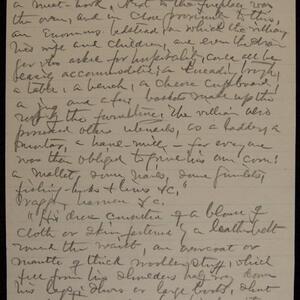 a meat-hook, Next to the fireplace was
the oven, and in close proximity to this,
an enormous bedstead on which the villein,
his wife and children, and even the stranger
for who asked for hospitality, could all be
easily accommodated; a kneading trough,
a table, a bench, a cheese cupboard,
a jug and a few baskets made up the
rest of the furniture. The villein also
possessed other utensils, as a ladder, a
mortar, a hand-mill — for everyone
was then obliged to grind his own corn:
a mallet, some nails, some gimlets,
fishing-hooks & lines &c,"
harrow &c.
"His dress consisted of a blouse of
cloth or skin fastened by a leather belt
round the waist, an overcoat or
mantle of thick woollen stuff, which
fell from his shoulders half way down
his legs; shoes or large boots, short